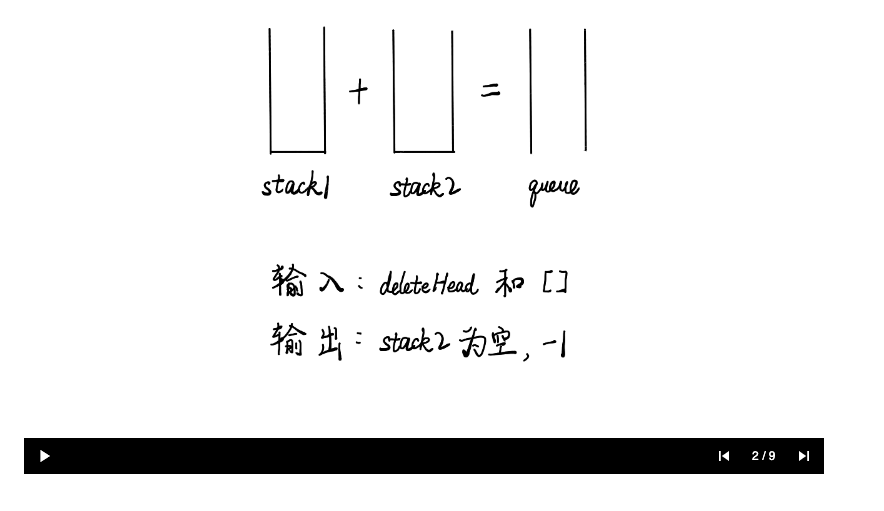 + =
stack1 stack2 queue
输入: deleteHead 和 []
输出: stack2 为空, -1
2/9